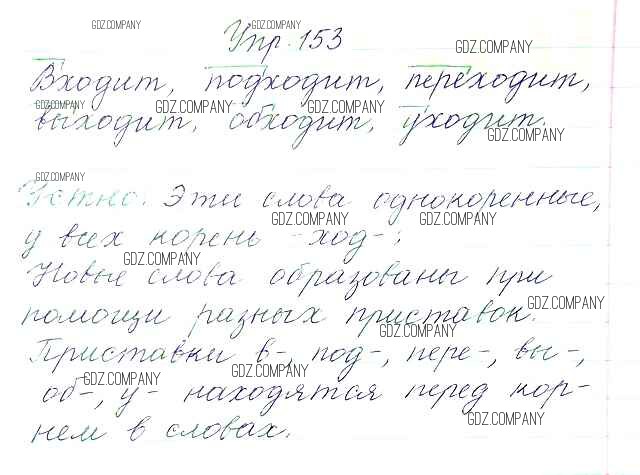 GDZ.COMPANY GDZ.COMPANY
Упр. 153
GDZ.COMPANY
Входит, подходит, переходит,
GDZ.COMPANY GDZ.COMPANY GDZ.COMPANY
выходит, обходит, уходит.
GDZ.COMPANY
GDZ.COMPANY
Устно. Эти слова однокоренные,
GDZ.COMPANY GDZ.COMPANY
у всех корень -ход-;
GDZ.COMPANY
Новые слова образованы при
GDZ.COMPANY
помощи разных приставок.
GDZ.COMPANY
Приставки в-, под-, пере-, вы-,
GDZ.COMPANY GDZ.COMPANY
об-, у- находятся перед кор-
GDZ.COMPANY
нем в словах.